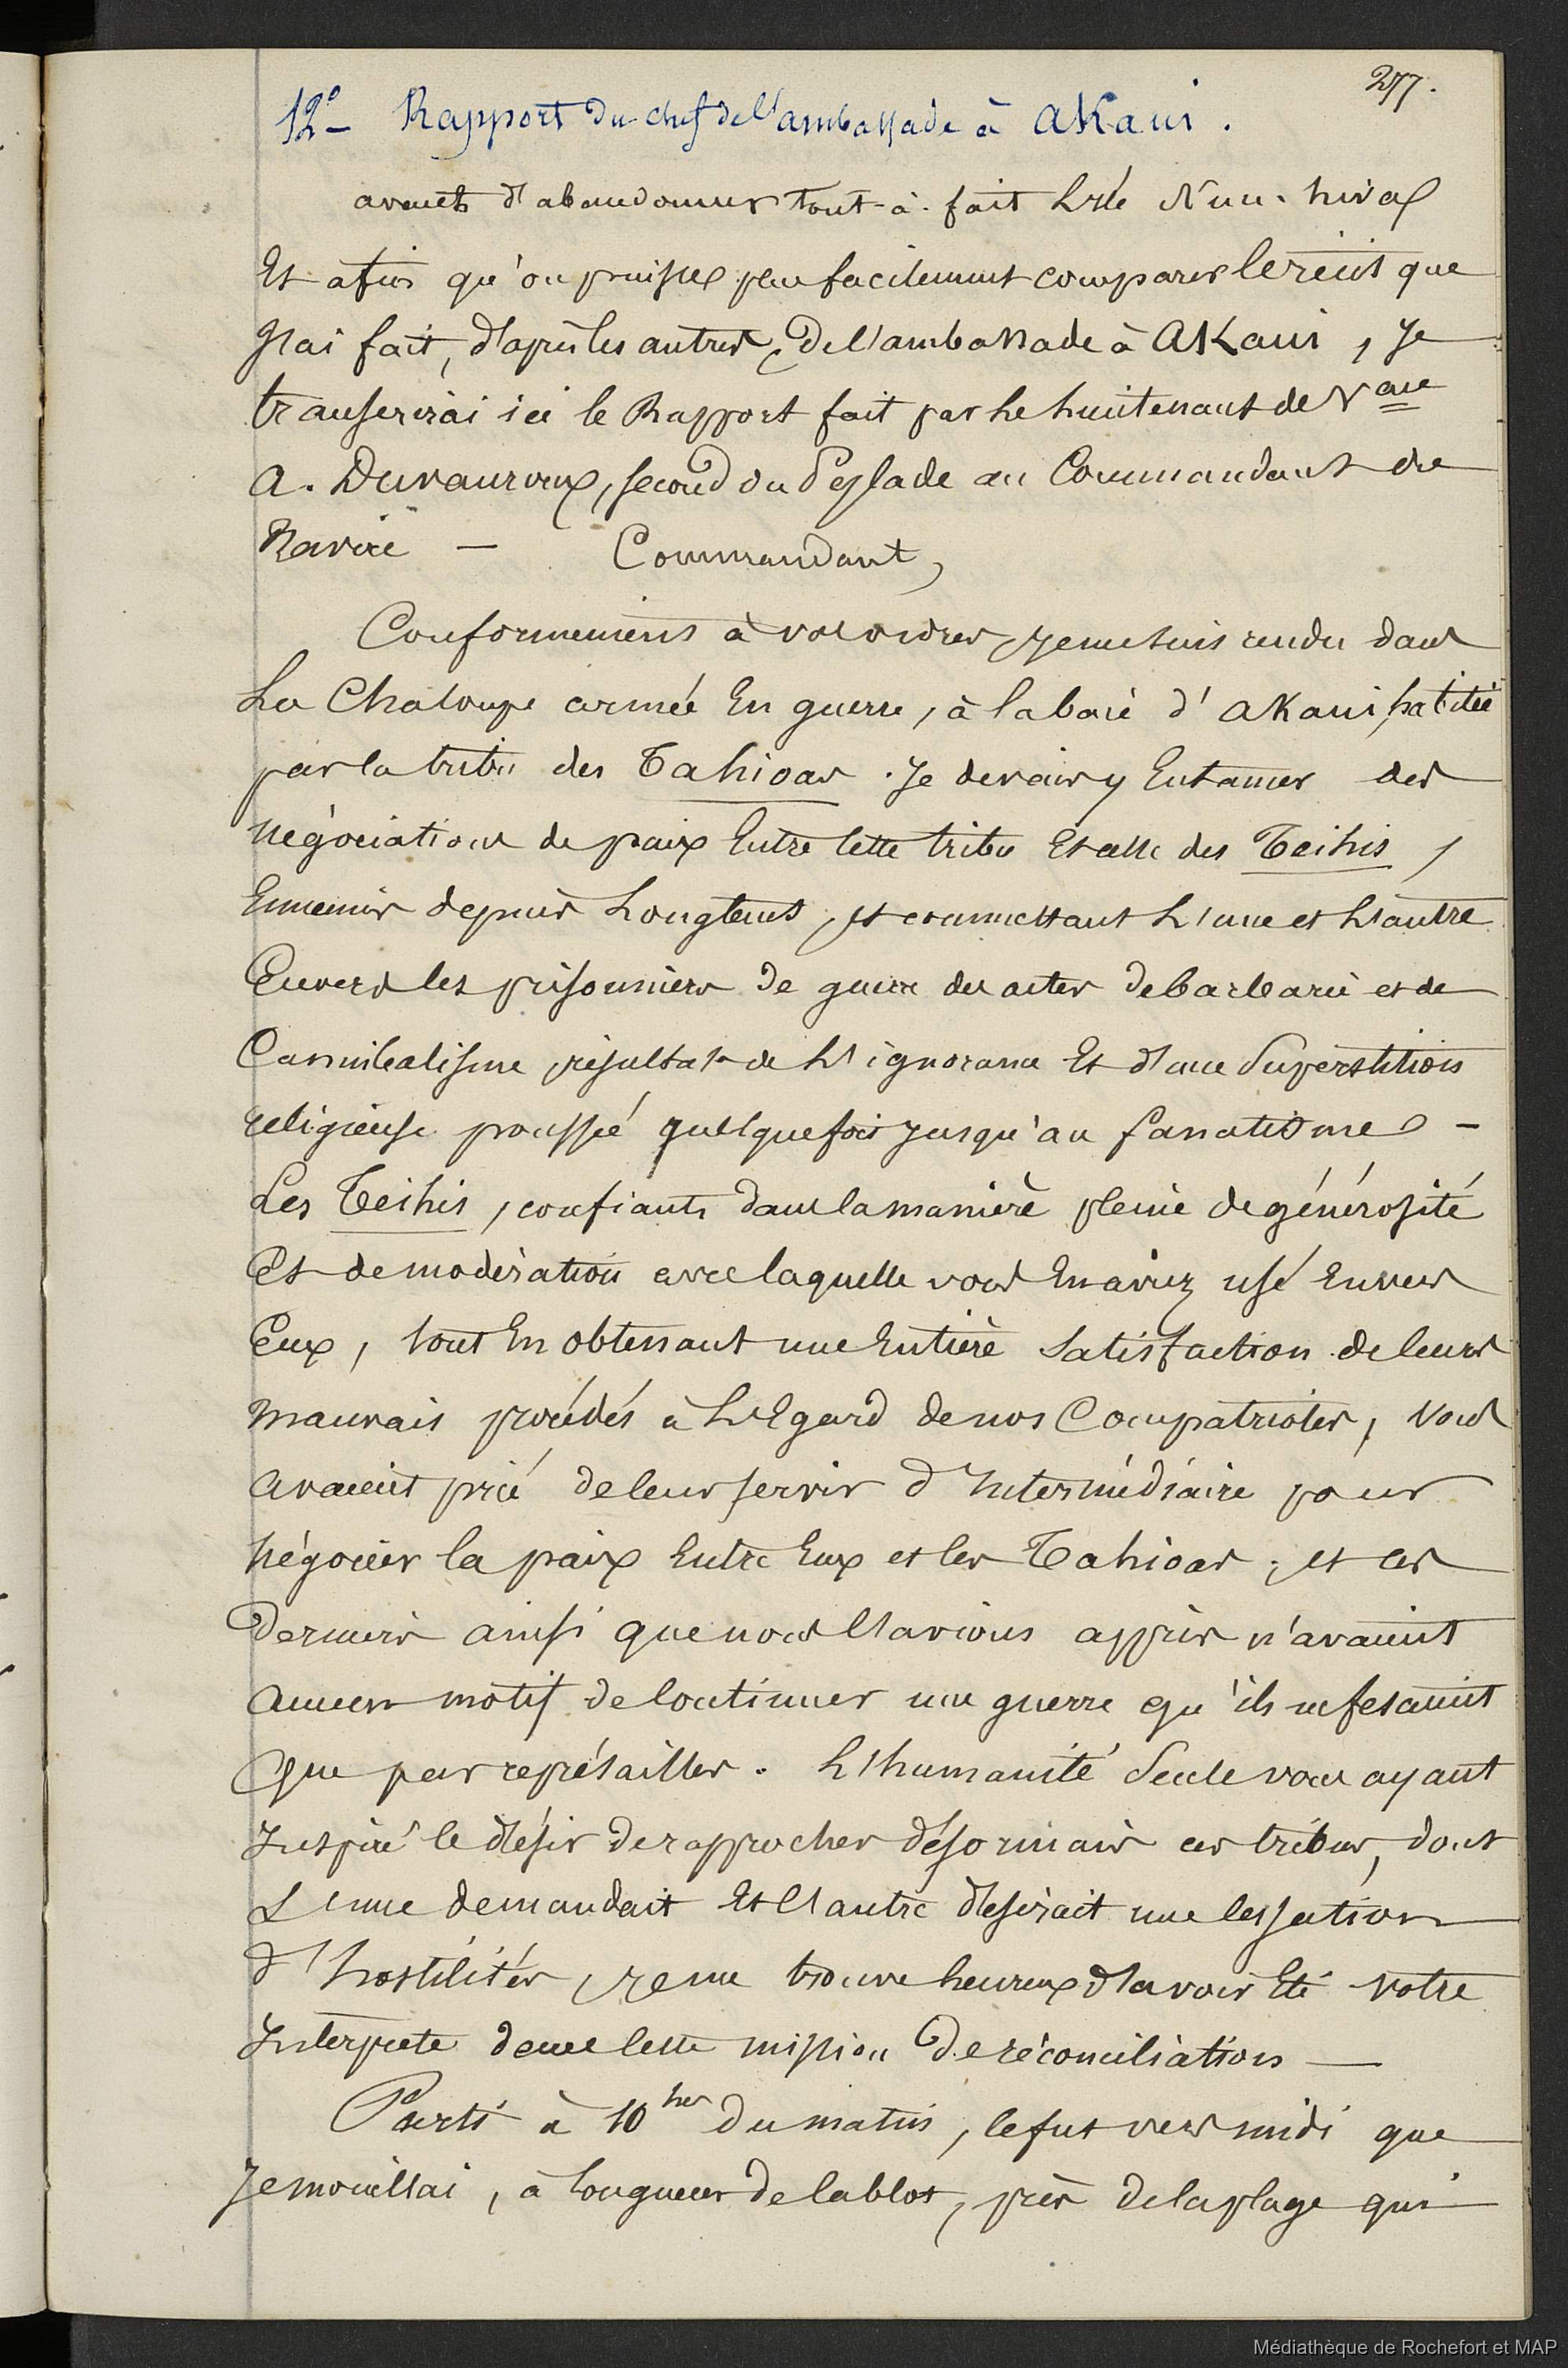 277.
12°- Rapport du chef de l'ambassade à Akaui.
avant d'abandonner tout-à-fait L'ile Nuu-hiva
Et afin qu'on puisse plus facilement comparer le récit que
J'ai fait, d'après les autres, de l'ambassade à Akaui, Je
transcrirai ici le Rapport fait par Le Lieutenant de Vau
A. Duvauroux, second du Pylade au Commandant du
Navire — Commandant,
Conformément à vos ordres, je me suis rendu dans
La Chaloupe armée En guerre, à la baie d'Akaui, habitée
par la tribu des Tahioas. Je devais y Entamer des
négociations de paix Entre Cette tribu Et celle des Teihis,
Ennemis depuis Longtems, et commettant L'une et L'autre
Envers les prisonniers de guerre des actes de barbarie et de
Cannibalisme, résultat de L'ignorance Et d'une Superstition
religieuse poussée quelquefois jusqu'au fanatisme -
Les Teihis, confiants dans la manière pleine de générosité
Et de modération avec laquelle vous En aviez usé Envers
Eux, tout En obtenant une Entière Satisfaction de leurs
mauvais procédés à L'Egard de nos Compatriotes, vous
avaient prié de leur servir d'Intermédiaire pour
Négocier la paix Entre Eux et les Tahioas, et ces
Derniers ainsi que nous l'avions appris n'avaient
aucun motif de Continuer une guerre qu'ils ne fesaient
Que par représailles. L'humanité Seule vous ayant
Inspiré le désir de rapprocher désormais ces tribus, dont
L'une demandait Et l'autre désirait une Cessation
d'hostilités, je me trouve heureux d'avoir Eté votre
Interprete dans Cette mission de réconciliation —
Parti à 10 hes du matin, Ce fut vers midi que
Je mouillai, à Longueur de Cablot, près de la plage qui
Médiathèque de Rochefort et MAP